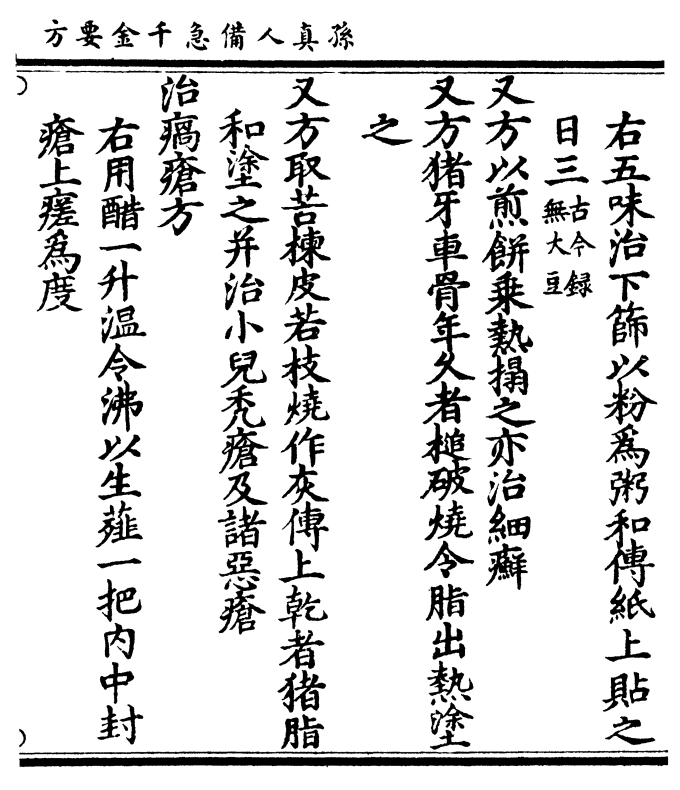 孫真人備急千金要方
右五味治下篩以粉爲粥和傅紙上貼之
日三古今録
無大豆
又方以煎餅乗熱搨之亦治細癬
又方猪牙車骨年久者槌破燒令脂出熱塗
之
又方取苦楝皮若枝燒作灰傅上乾者猪脂
和塗之并治小兒禿瘡及諸惡瘡
治瘑瘡方
右用醋一升温令沸以生薤一把内中封
瘡上瘥爲度